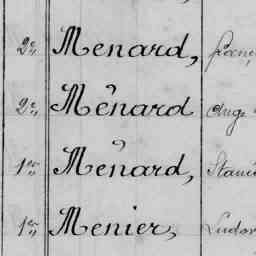 2e Menard, franç
2e Mênard Aug.
1er Mênard, Stanis
1er Menier, Ludov